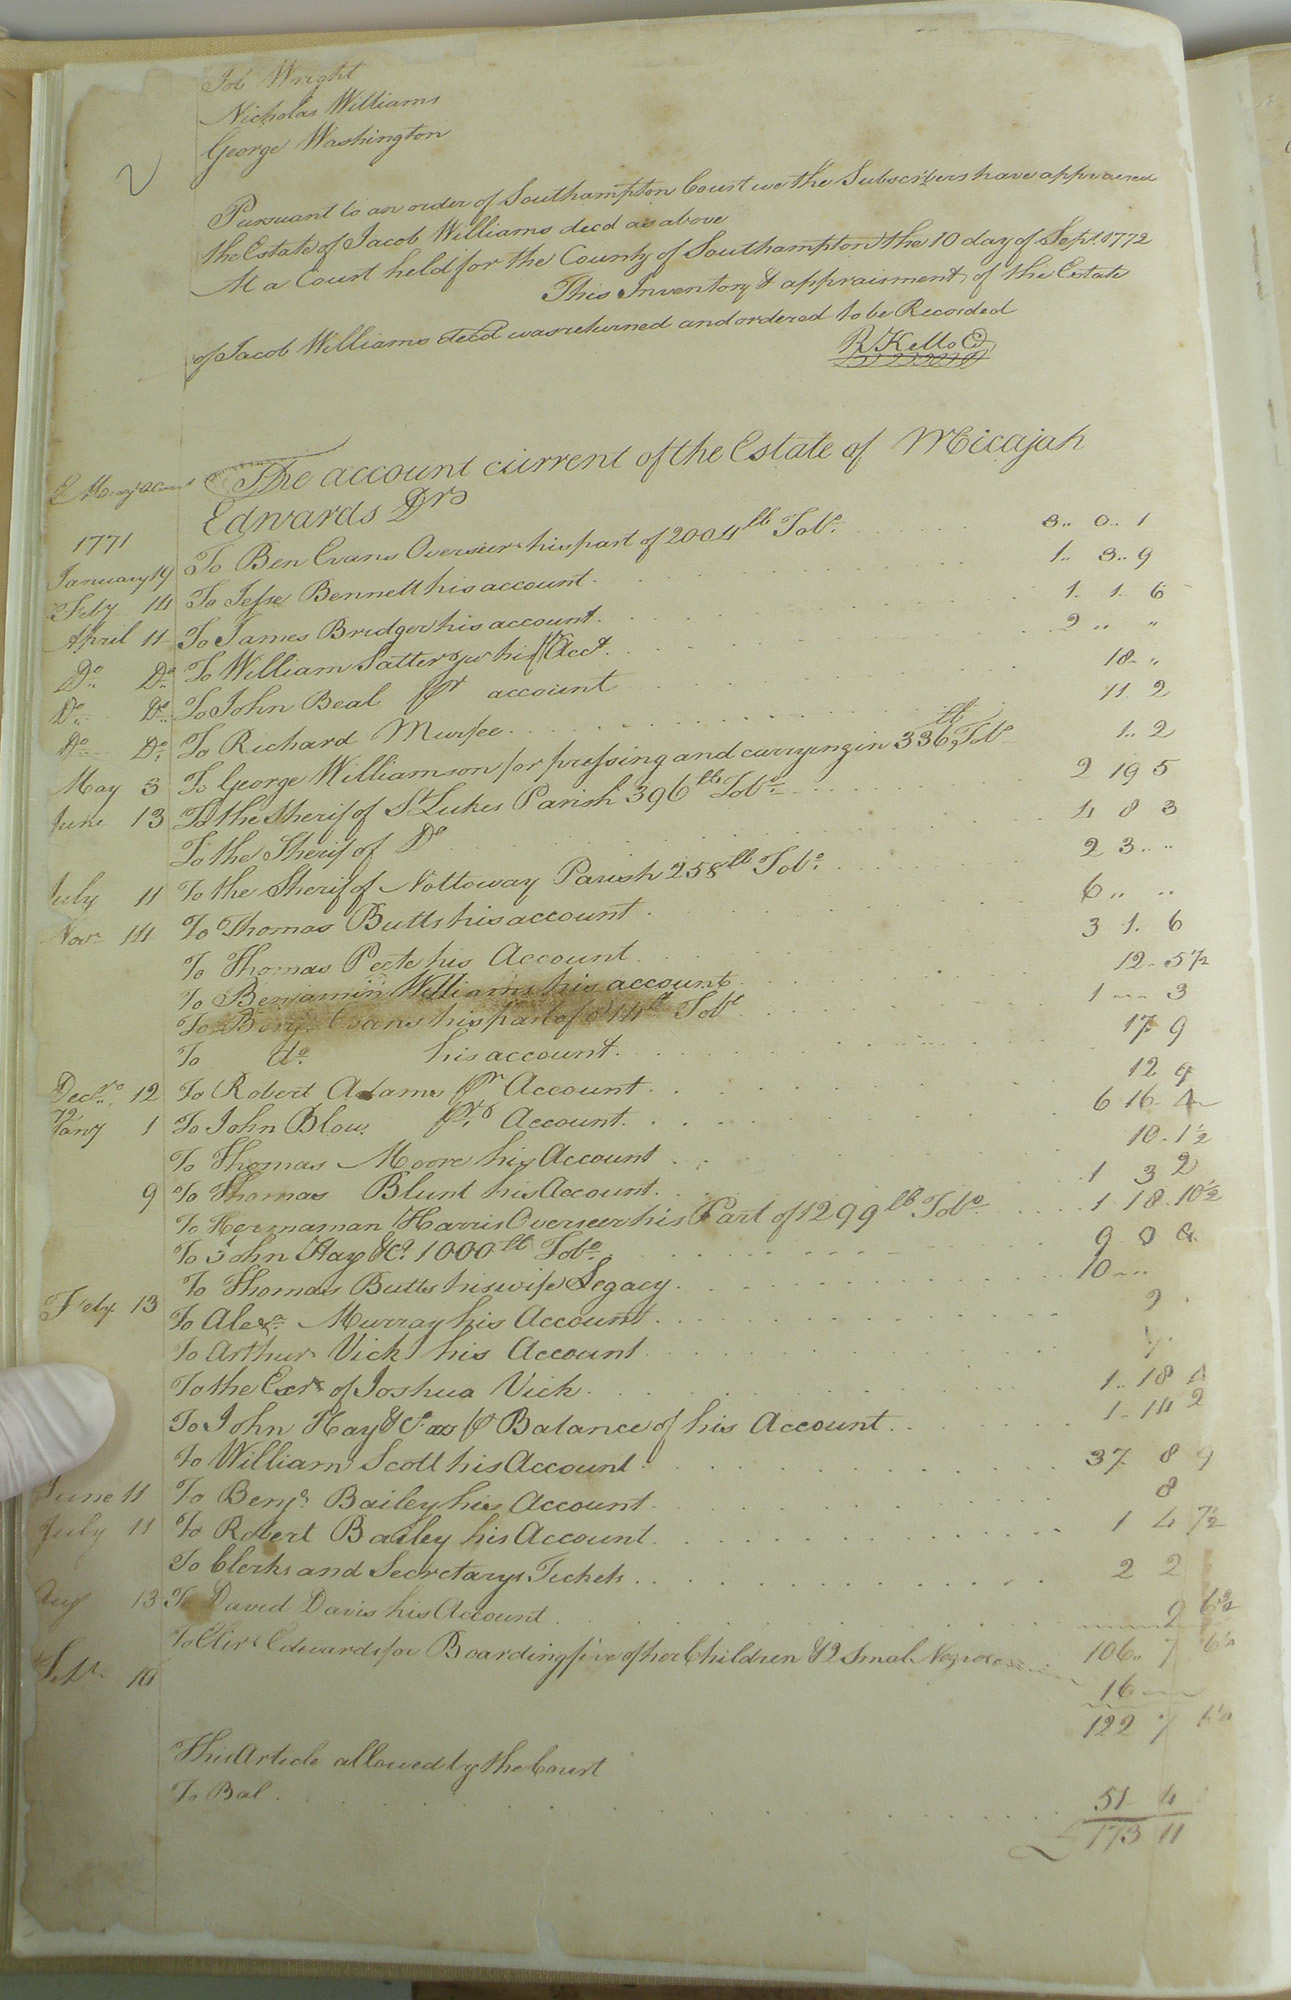 Job Wright
Nicholas Williams
George Washington
Pursuant to an order of Southampton Court we the Subscribers have appraised
the Estate of Jacob Williams decd as above
At a Court held for the County of Southampton the 10 day of Sept 1772
This Inventory & appraisment of the Estate
of Jacob Williams decd was returned and ordered to be Recorded
R Kello
The account current of the Estate of Micajah
Edwards Dr
1771
January 19 To Ben Evans Overseer his part of 2004 lb Tobo. 3.. 0.. 1
Feby 14 To Jesse Bennett his account. 1.. 3.. 9
April 11 To James Bridger his account. 1.. 1.. 6
Do. Do. To William his Acct. 2 .. "
Do. Do. To John Beal pr account 18.. "
Do. Do. To Richard Murfee. 11. 2
May 3 To George Williamson for pressing and carrying in 336 lb Tobo 1.. 2
June 13 To the Sherif of St Lukes Parish 396 lb Tobo 2 19 5
To the Sherif of Do 4 8 3
July 11 To the Sherif of Nottoway Parish 258 lb Tobo. 2 3.. ..
Novr 14 To Thomas Butts his account. 6.. ..
To Thomas Peete his Account. 3 1. 6
To Benjamin Williams his account 12. 5 1/2
To Benj. Evans his part of lb Tobo 1 -- 3
To do. his account. 17 9
Decr. 12 To Robert Adams pr Account. 12 9
72
Jany 1 To John Blow pr Account. 6 16 4
To Thomas Moore his Account 10. 1 1/2
9 To Thomas Blunt his Account. 1 3 2
To Hermaman Harris Overseer his Part of 1299 lb Tobo. 1. 18. 10 1/2
To John Hay &Co. 1000 lb Tobo. 9 8
To Thomas Butts his wife Legacy. 10 --
Feby 13 To Alexr. Murray his Account
To Arthur Vick his Account
To the Exrs of Joshua Vick. 1.. 18 4
To John Hay &Co pr Balance of his Account. 1. 14 2
To William Scott his Account. 37 8 9
June 11 To Benja. Bailey his Account 8
July 11 To Robert Bailey his Account 1 4 7 1/2
To Clerks and Secretarys Tickets. 2 2
Aug 13 To David Davis his Account 9
106.. 7
Sept. To Edwards for Boarding five of her Children & 2 Smal Negroes 16 --
122 7
This Article allowed by the Court
To Bal. 51 4
£ 173 11